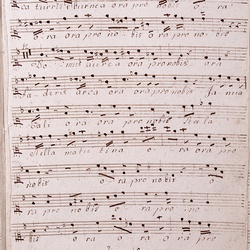 ca turris eburnea ora pro bis ra
ora pro no bis ora pro no bis
Do mus aurea ora pro nobis ora
fa deris arca ora pro nobis Ja nua
Cæli ora pro no bis Stella
stella matu tina o ora pro
nobis o ra pro nobis
ra pro nobis o ra pro no
bis ora pro nobis